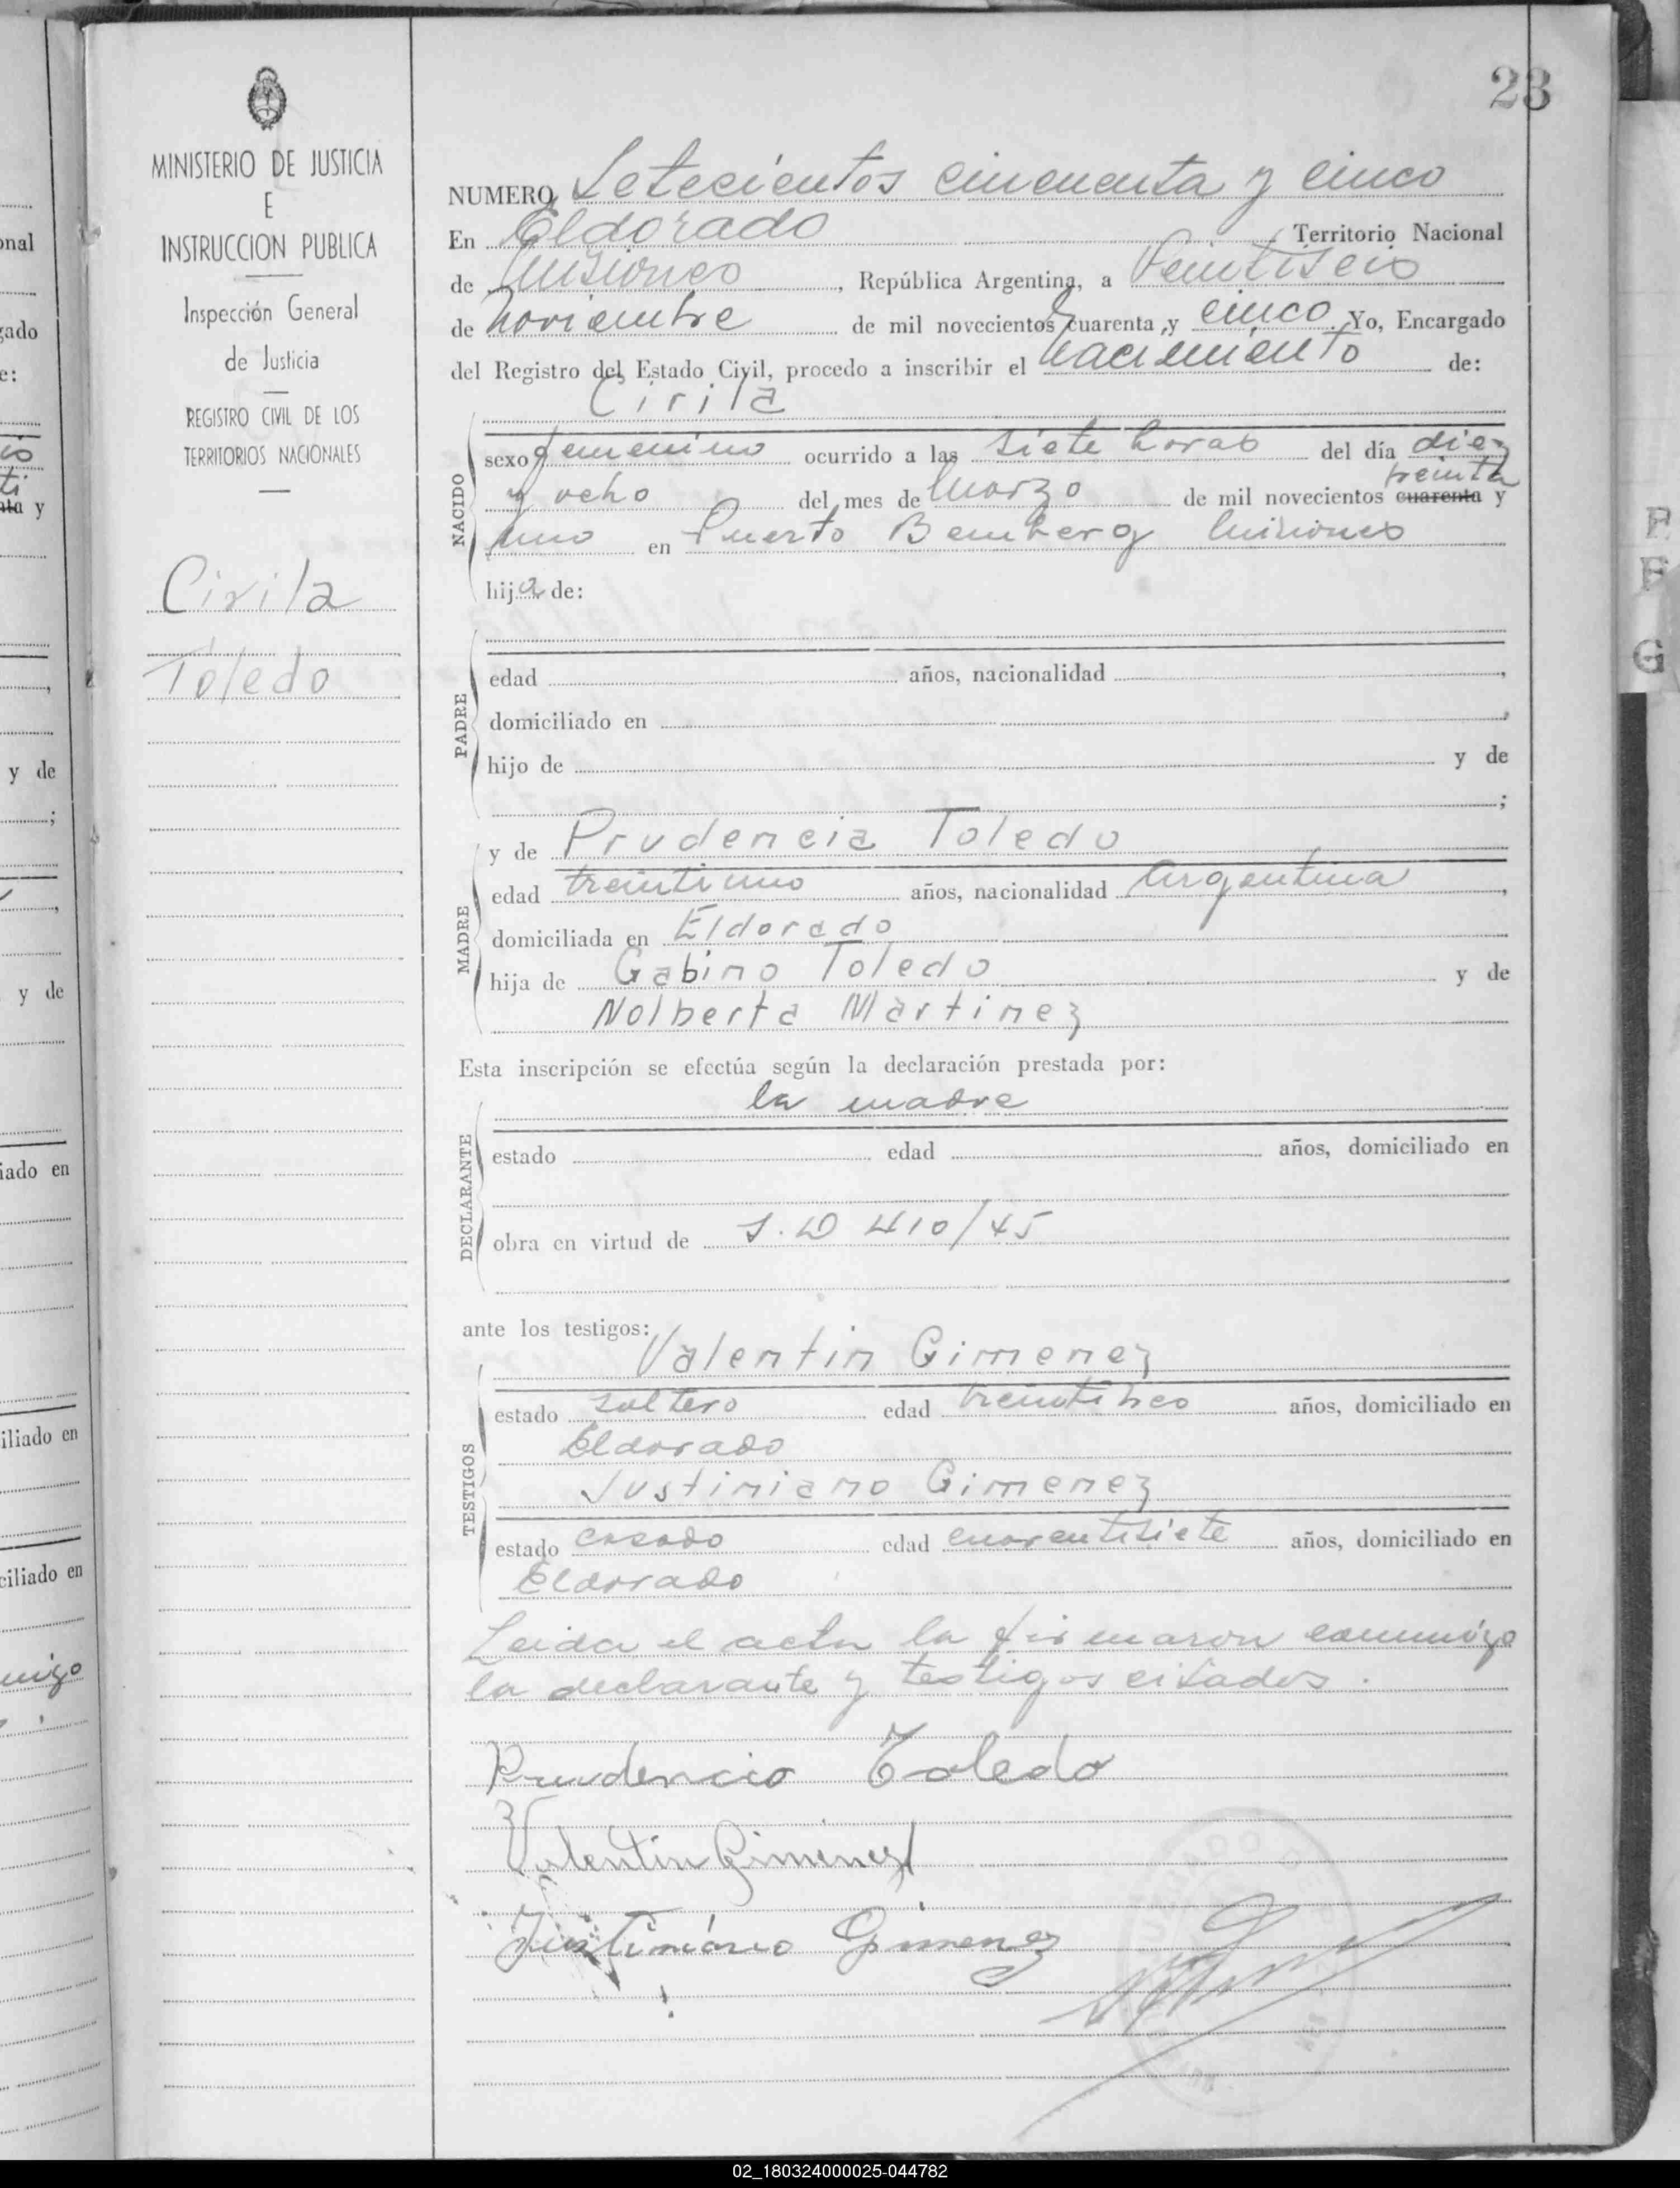 23
MINISTERIO DE JUSTICIA
E
INSTRUCCION PUBLICA
Inspección General
de Justicia
REGISTRO CIVIL DE LOS
TERRITORIOS NACIONALES
Cirila
Toledo
NUMERO Setecientos cincuenta y cinco
En Eldorado Territorio Nacional
de Misiones, República Argentina, a Veintiseis
de noviembre de mil novecientos cuarenta y cinco Yo, Encargado
del Registro del Estado Civil, procedo a inscribir el nacimiento de:
Cirila
NACIDO
sexo femenino ocurrido a las siete horas del día diez
y ocho del mes de Marzo de mil novecientos cuarenta treinta y
uno en Puerto Bemberg Misiones
hija de:
PADRE
edad años, nacionalidad ,
domiciliado en ,
hijo de y de
;
MADRE
y de Prudencia Toledo
edad treintiuno años, nacionalidad Argentina,
domiciliada en Eldorado
hija de Gabino Toledo y de
Nolberta Martinez
Esta inscripción se efectúa según la declaración prestada por:
la madre
DECLARANTE
estado edad años, domiciliado en
obra en virtud de S.D 410/45
ante los testigos:
Valentin Gimenez
TESTIGOS
estado soltero edad años, domiciliado en
Eldorado
Justiniano Gimenez
estado casado edad cuarentisiete años, domiciliado en
Eldorado
Leida el acta la firmaron conmigo
la declarante y testigos citados.
Prudencia Toledo
Valentin Gimenez
Justiniano Gimenez
onal
gado
e:
y
y de
;
y de
iado en
iliado en
ciliado en
migo
P
F
G
02_180324000025-044782